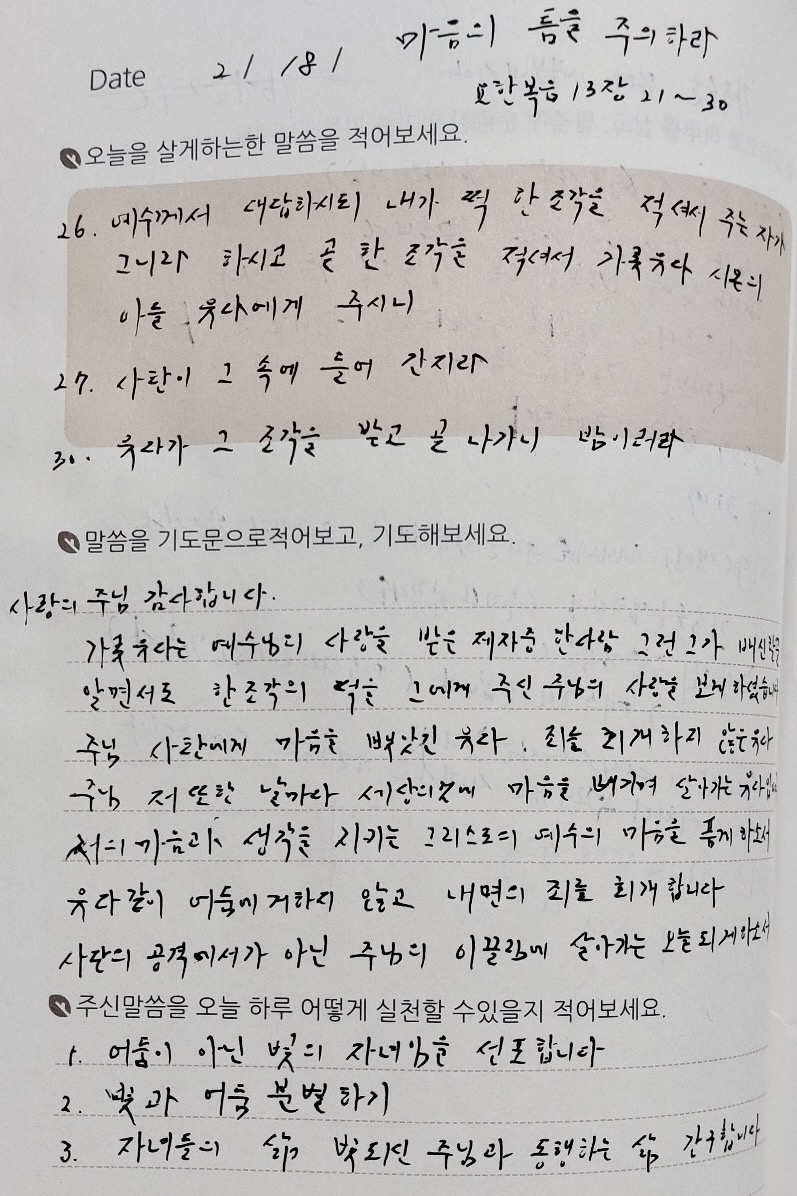 마음의 틈을 주의하라
Date 21 /8/
요한복음 13장 21~30
오늘을 살게하는한 말씀을 적어보세요.
26. 예수께서 대답하시되 내가 떡 한 조각을 적셔서 주는 자가
그니라 하시고 곧 한 조각을 적셔서 가룟유다 시몬의
아들 유다에게 주시니
27. 사탄이 그 속에 들어 간지라
30. 유다가 그 조각을 받고 곧 나가니 밤이러라
말씀을 기도문으로적어보고, 기도해보세요.
사랑의 주님 감사합니다.
가룟유다는 예수님의 사랑을 받은 제자중 한사람 그런 그가 배신할걸
알면서도 한조각의 떡을 그에게 주신 주님의 사랑을 보게 하셨습니다
주님 사탄에게 마음을 빼앗긴 유다. 죄를 회개하지 않은 유다
주님 저 또한 날마다 세상의것에 마음을 빼기며 살아가는 유다입니다
저의 마음과 생각을 지키는 그리스도의 예수의 마음을 품게하소서
유다같이 어둠에거하지 않고 내면의 죄를 회개합니다
사단의 공격에서가 아닌 주님의 이끌림에 살아가는 오늘되게하소서
주신말씀을 오늘 하루 어떻게 실천할 수있을지 적어보세요.
1. 어둠이 아닌 빛의 자녀임을 선포합니다
2. 빛과 어둠 분별하기
3. 자녀들의 삶 빛되신 주님과 동행하는 삶 간구합니다